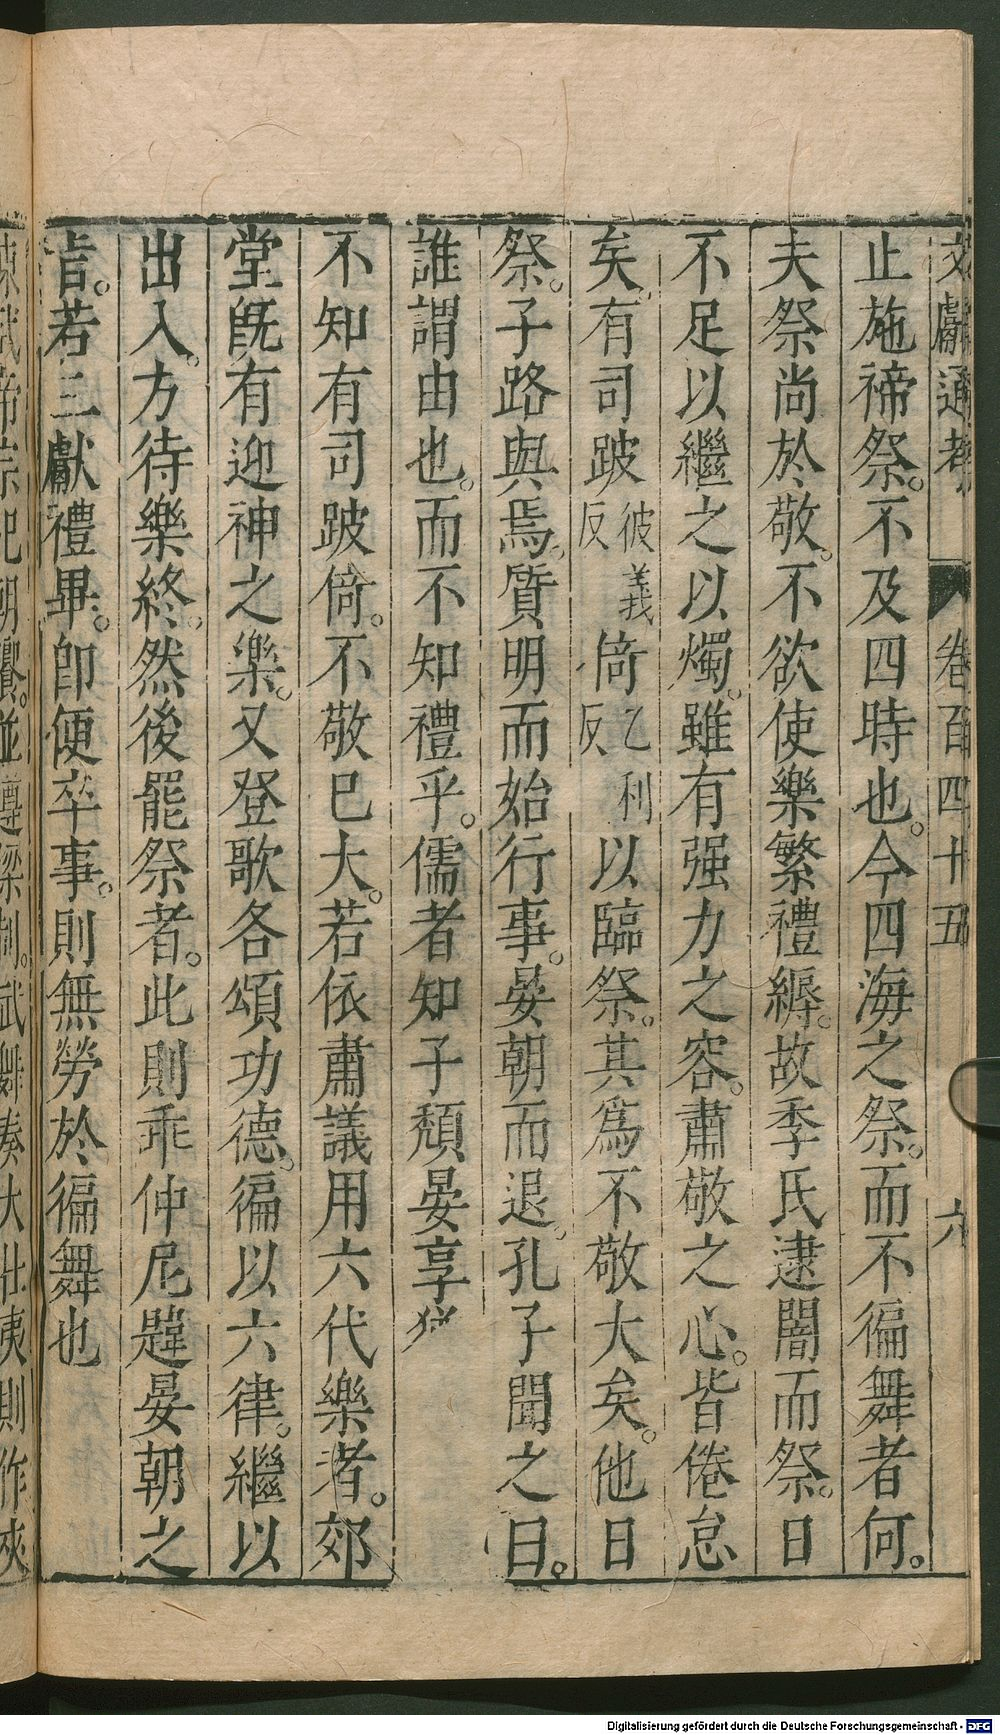 文獻通考 卷百四十五 六
止施禘祭。不及四時也。今四海之祭。而不徧舞者何。
夫祭尚於敬。不欲使樂繁禮縟。故季氏逮闇而祭。日
不足以繼之以燭。雖有强力之容。肅敬之心。皆倦怠
矣。有司跛彼義反倚乙利反以臨祭。其爲不敬大矣。他日
祭。子路與焉。質明而始行事。晏朝而退。孔子聞之曰。
誰謂由也。而不知禮乎。儒者知子頹晏享
不知有司跛倚。不敬已大。若依肅議用六代樂者。郊
堂旣有迎神之樂。又登歌各頌功德。徧以六律。繼以
出入。方待樂終。然後罷祭者。此則乖仲尼韙晏朝之
旨。若三獻禮畢。即便卒事。則無勞於徧舞也
帝宗祀朝饗。並遵梁制。武舞奏大壯夷則作夾
Digitalisierung gefördert durch die Deutsche Forschungsgemeinschaft - DFG